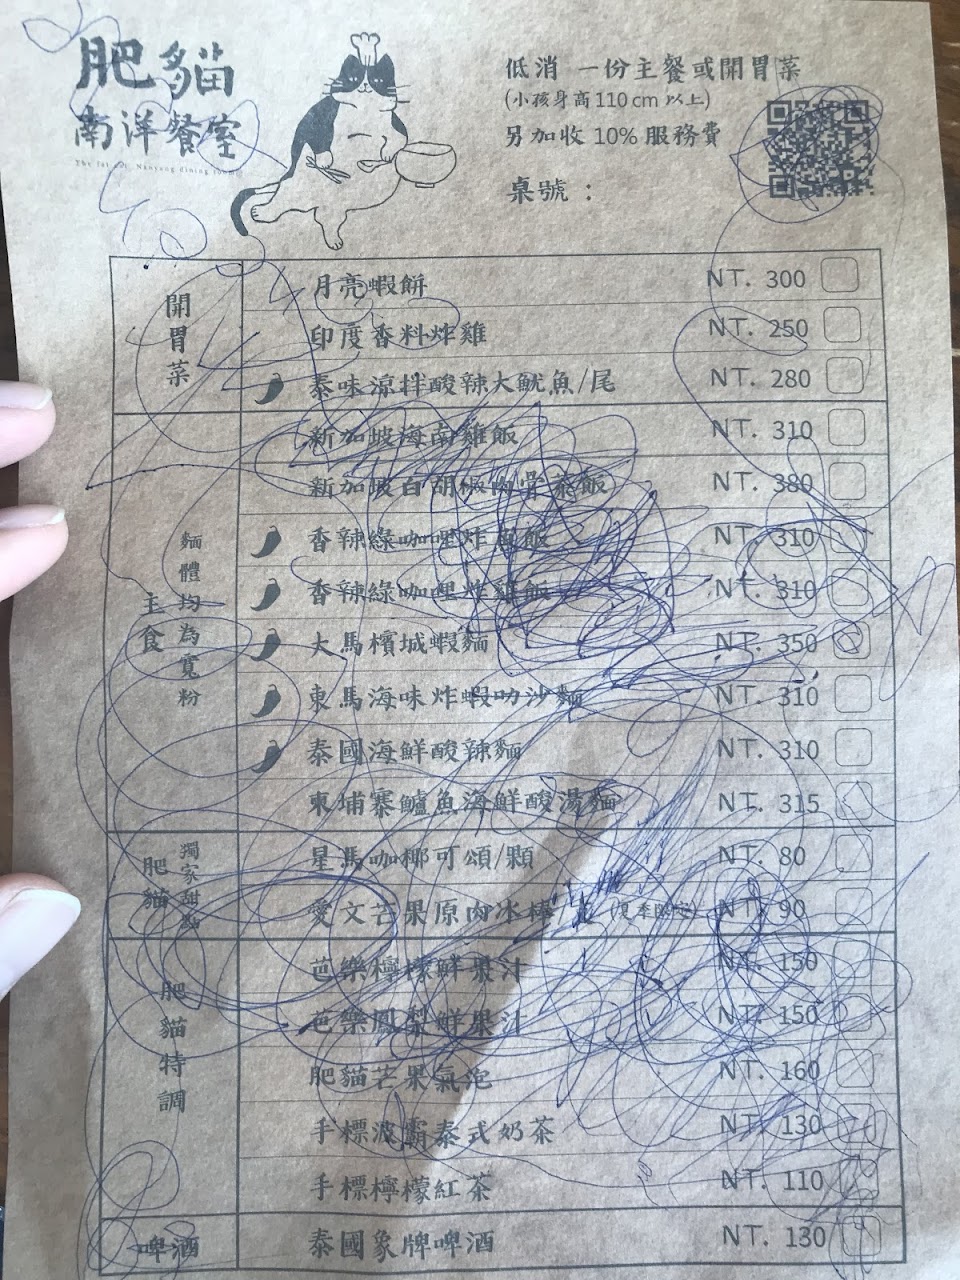 肥貓
南洋餐室
The fat cat Nanyang dining room
低消 一份主餐或開胃菜
(小孩身高 110 cm 以上)
另加收 10% 服務費
桌號：
開胃菜
月亮蝦餅 NT. 300
印度香料炸雞 NT. 250
泰味涼拌酸辣大魷魚/尾 NT. 280
主食
麵體均為寬粉
新加坡海南雞飯 NT. 310
新加坡白胡椒肉骨茶飯 NT. 380
香辣綠咖哩炸飯 NT. 310
香辣綠咖哩炸雞飯 NT. 310
大馬檳城蝦麵 NT. 350
東馬海味炸蝦叻沙麵 NT. 310
泰國海鮮酸辣麵 NT. 310
柬埔寨鱸魚海鮮酸湯麵 NT. 315
肥貓
獨家甜點
星馬咖椰可頌/顆 NT. 80
愛文芒果原肉冰棒 (夏季限定) NT. 90
肥貓特調
芭樂檸檬鮮果汁 NT. 150
芭樂鳳梨鮮果汁 NT. 150
肥貓芒果氣泡 NT. 160
手標波霸泰式奶茶 NT. 130
手標檸檬紅茶 NT. 110
啤酒
泰國象牌啤酒 NT. 130